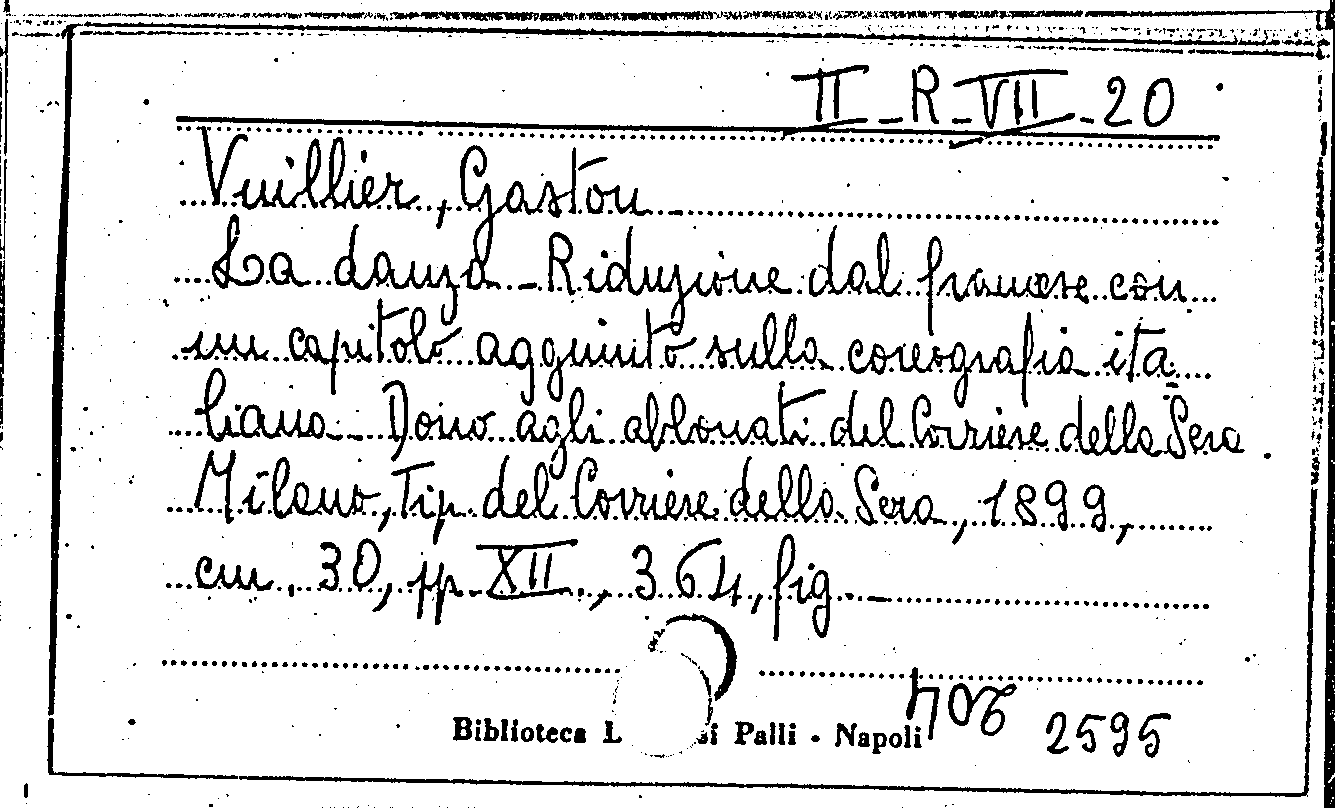 II-R-VII-20
Vuillier, Gaston
La danza - Riduzione dal francese con
un capitolo aggiunto sulla coreografia ita
liana - Dono agli abbonati del Corriere della Sera.
Milano, Tip. del Corriere della Sera, 1899,
cm. 30, pp. XII., 364, fig. -
Biblioteca L si Palli - Napoli
2595